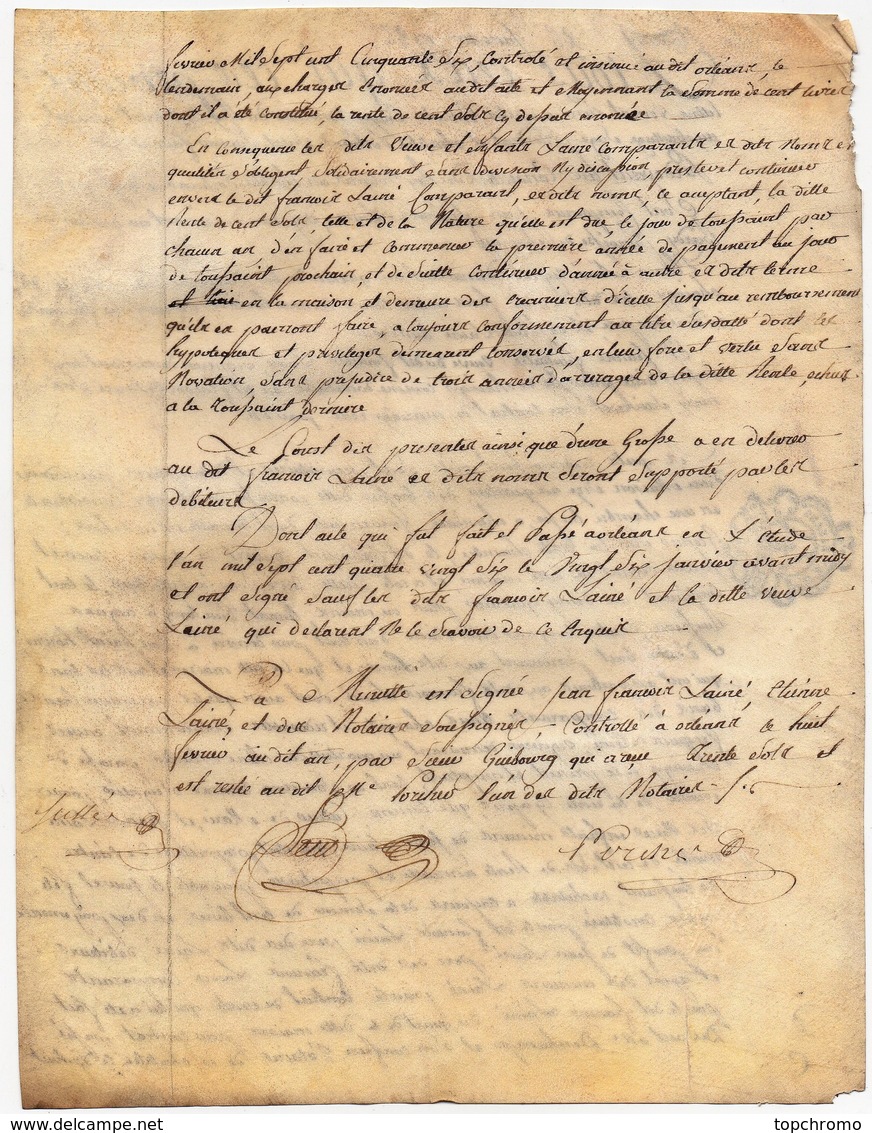 fevrier Mil Sept cent Cinquante Six, Controlé et insinué audit orléans, le
lendemain, aux charges Enoncées audit acte et Moyennant la Somme de cent livres
dont il a été Constitué, la rente de cent Sols Cy depas enoncée
En consequence les dits Veuve et enfants Lainé Comparants es dits Noms et
qualités S'obligent Solidairement Sans division Ny discussion, prester et continuer
envers le dit francois Lainé Comparant, es dits noms, ce aceptant, la ditte
Rente de cent Sols, telle et de la Nature qu'elle est due le jour de toussaint par
chacun an d'en faire et Commencer la premiere année de payement au jour
de toussaint prochain, et de Suitte Continuer d'année à autre es dits terme
en la maison et demeure des Creanciers d'icelle jusqu'au remboursement
qu'ils en pourront faire, a toujours conformement au titre Susdatté dont les
hypoteques et privileges demeurent conservés, en leur force et vertu Sans
Novation, Sans prejudice de trois années d'arrerages de la ditte Rente, echus
a la toussaint derniere
Le Coust des presentes ainsi que d'une Grosse a en delivrer
au dit francois Lainé es dits noms Seront Supporté par les
debiteurs
Dont acte qui fut fait et Passé a orléans en L'étude
l'an mil Sept cent quatre vingt Six le Vingt Six janvier avant midy
et ont Signé Sauf les dits francois Lainé et la ditte veuve
Lainé qui declarent Ne le Savoir de ce Enquis
La Minutte est Signée Jean francois Lainé, Etienne
Lainé, et des Notaires Soussignés, Controllé à orléans le huit
fevrier audit an, par Sieur Guibourg qui a reçu Trente Sols et
est restée au dit Me Porcher l'un des dits Notaires
Porcher
www.delcampe.net
topchromo